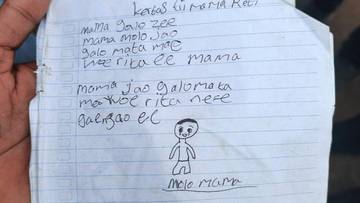 kertas tu mama Keti
mama galo zee
mama molo jao
galo mata mae
woe rita ee mama
mama jao galo mata
ma woe rita nete
gae jao ee
molo mama